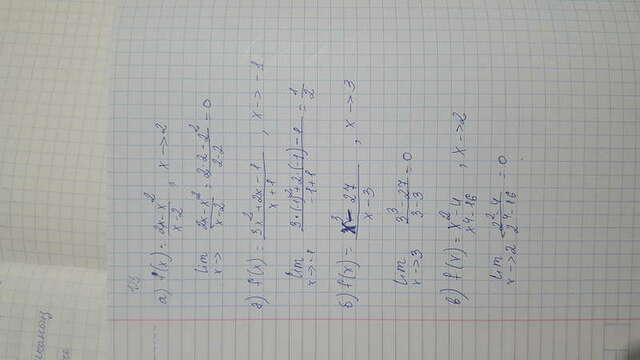 а) f(x) = (2x-x²)/(x-2), x → 2
lim x→ (2x-x²)/(x-2) = (2·2-2²)/(2-2) = 0
г) f(x) = (3x²+2x-1)/(x+1), x → -1
lim x→-1 (3·(-1)²+2·(-1)-1)/(-1+1) = 1/2
б) f(x) = (x³-27)/(x-3), x → 3
lim x→3 (3³-27)/(3-3) = 0
в) f(x) = (x²-4)/(x⁴-16), x → 2
lim x→2 (2²-4)/(2⁴-16) = 0